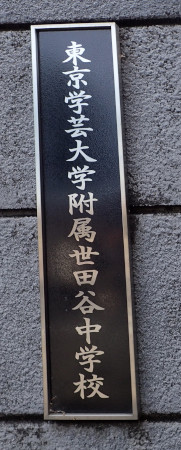 東京学芸大学附属世田谷中学校